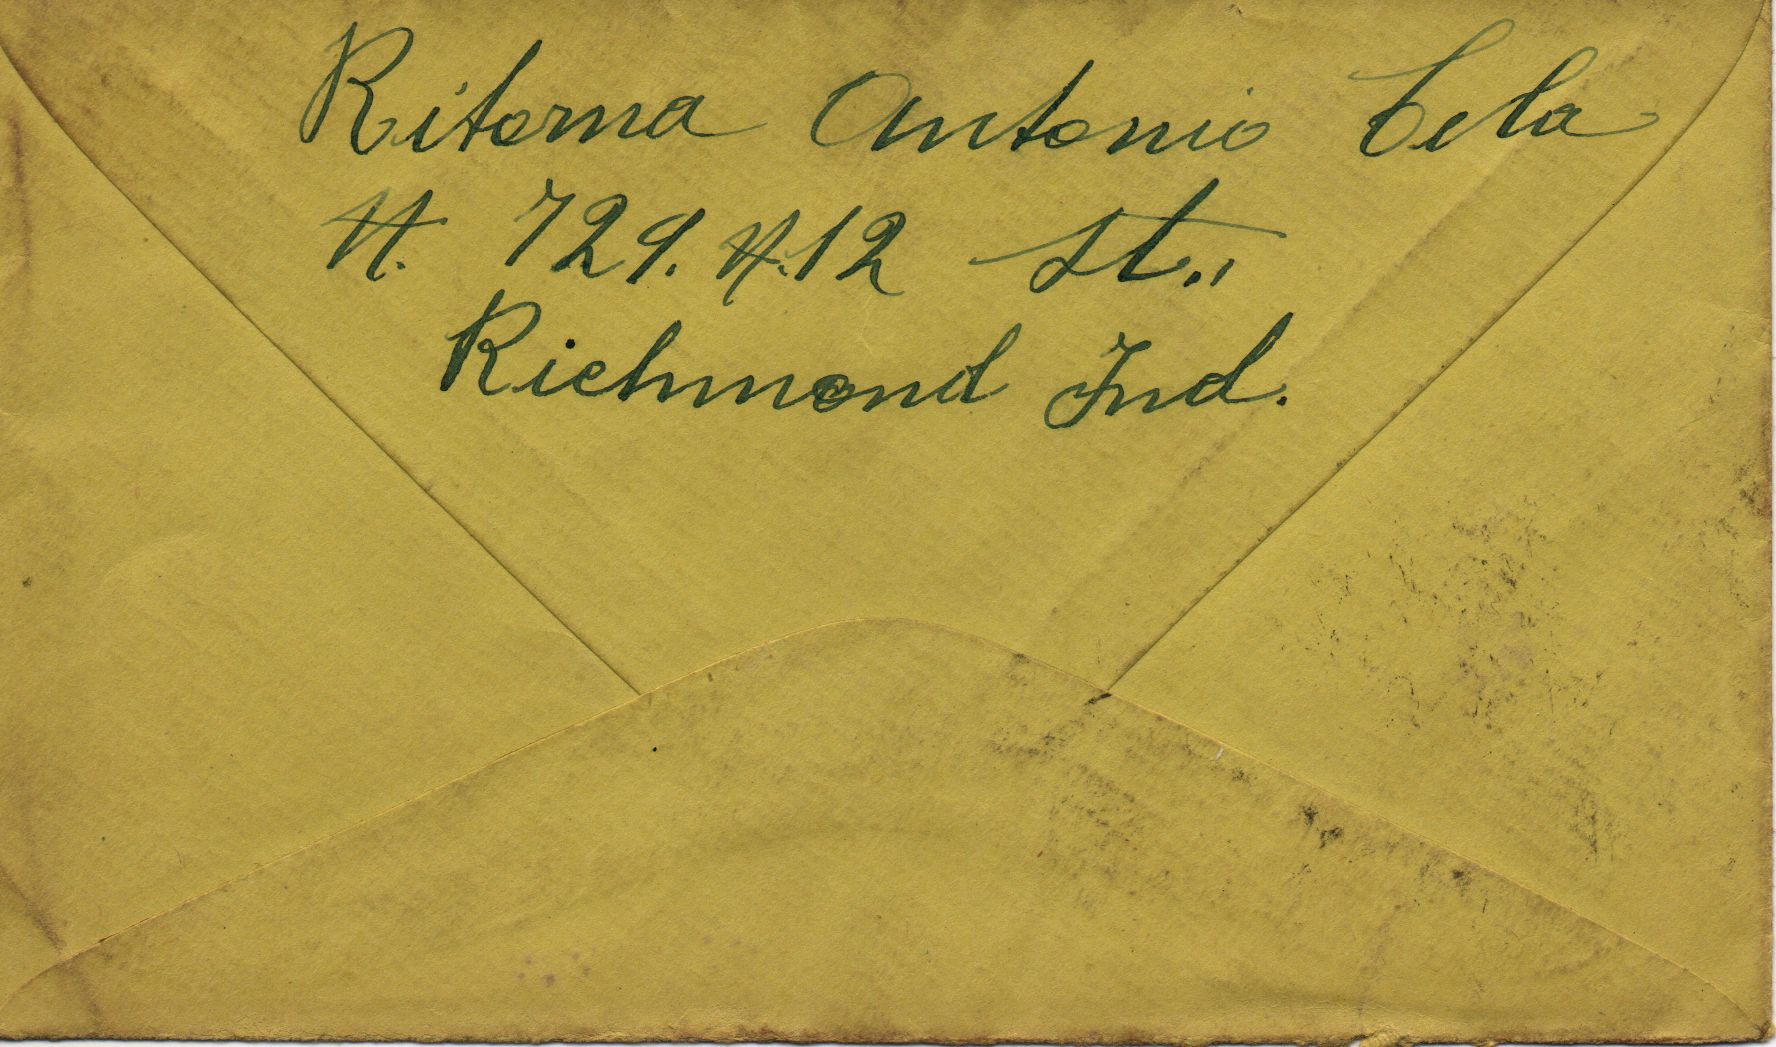 Ritorna Antonio Cela
N. 729. N. 12 St.,
Richmond Ind.